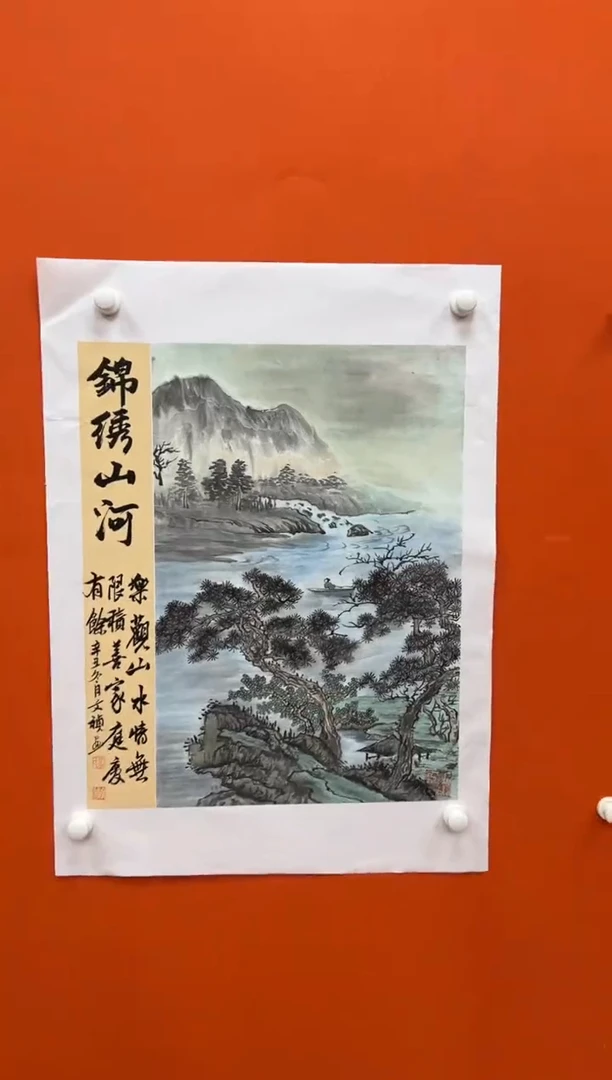 錦綉山河
樂觀山水情無
限積善家庭慶
有餘 辛丑冬月文禎